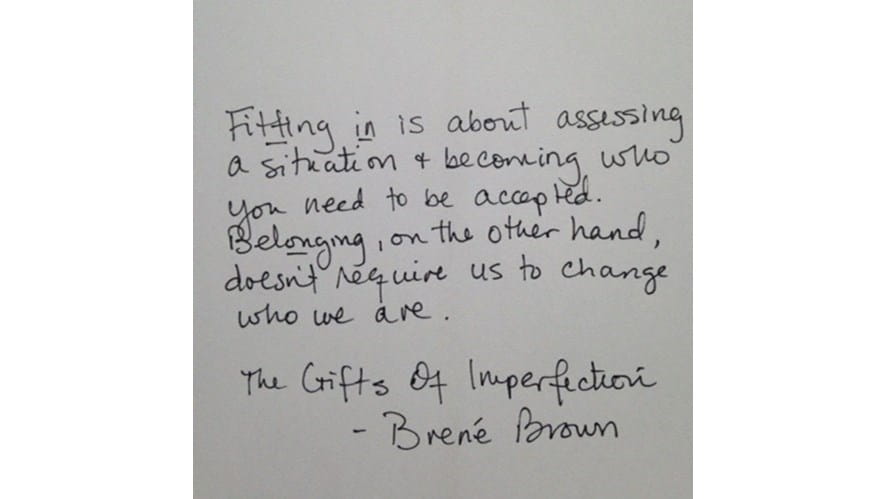 Fitting in is about assessing
a situation & becoming who
you need to be accepted.
Belonging, on the other hand,
doesn't require us to change
who we are.
The Gifts Of Imperfection
- Brené Brown